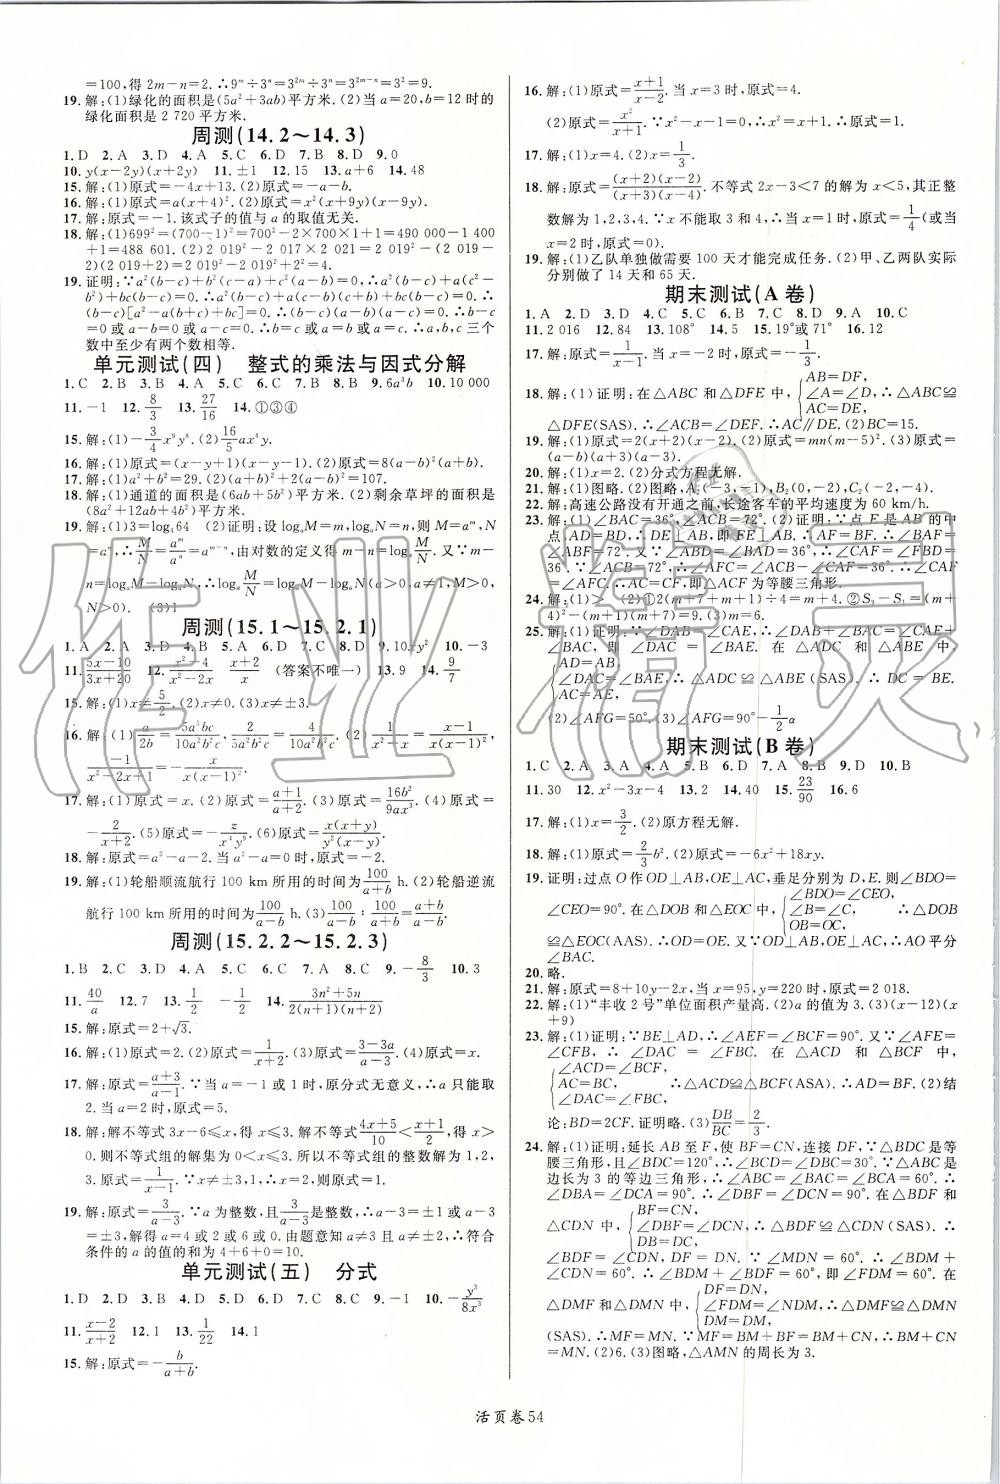 =100,得 2m-n=2.∴9^m÷3^n=3^{2m}÷3^n=3^{2m-n}=3^2=9.
19.解:(1)绿化的面积是(5a²+3ab)平方米.(2)当 a=20,b=12 时的
绿化面积是 2 720 平方米.
周测(14.2～14.3)
1.D 2.A 3.D 4.A 5.C 6.D 7.B 8.D 9.0
10.y(x-2y)(x+2y) 11.±1 12.15 13.a+6 14.48
15.解:(1)原式=-4x+13.(2)原式=-a-b.
16.解:(1)原式=a(x+4)².(2)原式=x²(x+9y)(x-9y).
17.解:原式=-1.该式子的值与 a 的取值无关.
18.解:(1)699²=(700-1)²=700²-2×700×1+1=490 000-1 400
+1=488 601.(2)2 019²-2 017×2 021=2 019²-(2 019-
2)(2 019+2)=2 019²-2 019²+2²=4.
19.证明:∵a²(b-c)+b²(c-a)+c²(a-b)=0,∴a²(b-c)+a(c²-
b²)+bc(b-c)=0.∴a²(b-c)-a(b-c)(b+c)+bc(b-c)=0.∴
(b-c)[a²-a(b+c)+bc]=0.∴(b-c)(a-b)(a-c)=0.∴b-c=
0 或 a-b=0 或 a-c=0.∴b=c 或 a=b 或 a=c.∴a,b,c 三个
数中至少有两个数相等.
单元测试(四) 整式的乘法与因式分解
1.C 2.B 3.B 4.A 5.C 6.A 7.B 8.B 9.6a³b 10.10 000
11.-1 12.8/3 13.27/16 14.①③④
15.解:(1)-3/4x⁹y⁸.(2)16/5ax⁴y.
16.解:(1)原式=(x-y+1)(x-y-1).(2)原式=8(a-b)²(a+b).
17.解:(1)a²+b²=29.(2)a²-ab+b²=(a+b)²-2ab=107.
18.解:(1)通道的面积是(6ab+5b²)平方米.(2)剩余草坪的面积是
(8a²+12ab+4b²)平方米.
19.解:(1)3=log₄64 (2)证明:设 logₐM=m,logₐN=n,则 M=a^m,N
=a^n.∴M/N=a^m/a^n=a^{m-n},由对数的定义得 m-n=logₐM/N.又∵m-
n=logₐM-logₐN,∴logₐM/N=logₐM-logₐN(a>0,a≠1,M>0,
N>0). (3)1
周测(15.1～15.2.1)
1.A 2.A 3.D 4.A 5.C 6.D 7.C 8.D 9. 10.-3
11.(5x-10)/(3x+20) 12.(x²-4)/(x²-2x) (x+2)/x (答案不唯一) 13.9 14.9/7
15.解:(1)x≠5/2.(2)x≠0.(3)x≠±3.
16.解:(1)a/2b=5a³bc/10a²b²c,2/5a²b²c=4/10a²b²c.(2)1/(x²-x)=(x-1)/x(x-1)²,
-1/(x²-2x+1)=-x/x(x-1)².
17.解:(1)原式=x.(2)原式=(a+1)/(a+2).(3)原式=16b²/9ax³.(4)原式=
-2/(x+2).(5)原式=-z/x⁴y⁶.(6)原式=x(x+y)/y²(x-y).
18.解:原式=a²-a-2.当 a=0 时,原式=-2.
19.解:(1)轮船顺流航行 100 km 所用的时间为100/(a+b) h.(2)轮船逆流
航行 100 km 所用的时间为100/(a-b) h.(3)100/(a-b)÷100/(a+b)=(a+b)/(a-b).
周测(15.2.2～15.2.3)
1.B 2.C 3.D 4.A 5.C 6.C 7.A 8.C 9.-8/3 10.3
11.40/a 12.7 13.1/2 -1/2 14.(3n²+5n)/2(n+1)(n+2)
15.解:原式=2+√3.
16.解:(1)原式=2.(2)原式=1/(x+2).(3)原式=(3-3a)/(a-b).(4)原式=x.
17.解:原式=(a+3)/(a-1).∵当 a=-1 或 1 时,原分式无意义,∴a 只能取
2.当 a=2 时,原式=5.
18.解:解不等式 3x-6≤x,得 x≤3.解不等式(4x+5)/10<(x+1)/2,得 x>
0.则不等式组的解集为 0<x≤3.所以不等式组的整数解为 1,2,
3.原式=1/(x-1).∵x≠±3,1,∴x=2.当 x=2 时,原式=1.
19.解:原式=3/(a-3).∵a 为整数,且3/(a-3)为整数,∴a-3=±1 或 a-3=
±3.解得 a=4 或 2 或 6 或 0.由题意知 a≠3 且 a≠2,∴符合
条件的 a 的值的和为 4+6+0=10.
单元测试(五) 分式
1.D 2.D 3.D 4.A 5.C 6.D 7.C 8.C 9.-1 10.-y³/8x³
11.(x-2)/(x+2) 12.1 13.1/22 14.1
15.解:原式=-b/(a+b).
16.解:(1)原式=(x+1)/(x-2).当 x=3 时,原式=4.
(2)原式=x²/(x+1).∵x²-x-1=0,∴x²=x+1.∴原式=1.
17.解:(1)x=4.(2)x=1/3.
18.解:原式=(x+2)(x-2)/(x+3)(x-3).不等式 2x-3<7 的解为 x<5,其正整
数解为 1,2,3,4.∵x 不能取 3 和 4,∴当 x=1 时,原式=1/4(或当
x=2 时,原式=0).
19.解:(1)乙队单独做需要 100 天才能完成任务.(2)甲、乙两队实际
分别做了 14 天和 65 天.
期末测试(A 卷)
1.A 2.D 3.D 4.C 5.C 6.B 7.C 8.D 9.A 10.C
11.2 016 12.84 13.108° 14.5 15.19°或 71° 16.12
17.解:原式=x/(x-1).当 x=-2 时,原式=-1/3.
18.解:(1)证明:在△ABC 和△DFE 中,{AB=DF, ∠A=∠D, AC=DE,∴△ABC≌
△DFE(SAS).∴∠ACB=∠DEF.∴AC∥DE.(2)BC=15.
19.解:(1)原式=2(x+2)(x-2).(2)原式=mn(m-5)².(3)原式=
(a-b)(a+3)(a-3).
20.解:(1)x=2.(2)分式方程无解.
21.解:(1)图略.(2)图略,A₁(-2,-1),B₂(0,-2),C₂(-2,-4).
22.解:高速公路没有开通之前,长途客车的平均速度为 60 km/h.
23.解:(1)∠BAC=36°,∠ACB=72°.(2)证明:∵点 E 是 AB 的中
点,AD=BD,∴DE⊥AB,即 FE⊥AB.∴AF=BF.∴∠BAF=
∠ABF=72°.又∵∠BAD=∠ABD=36°,∴∠CAF=∠FBD=
36°.∵∠ACB=72°,∴∠AFC=∠ACB-∠CAF=36°.∴∠CAF
=∠AFC=36°.∴AC=CF,即△ACF 为等腰三角形.
24.解:(1)> (2)①2(m+7+m+1)÷4=m+4.②S₂-S₁=(m+
4)²-(m+7)(m+1)=m²+8m+16-m²-8m-7=9.(3)m=6.
25.解:(1)证明:∵∠DAB=∠CAE,∴∠DAB+∠BAC=∠CAE
+∠BAC.∴∠DAC=∠BAE.在△ADC 和△ABE 中,
{AD=AB, ∠DAC=∠BAE, AC=AE,∴△ADC≌△ABE(SAS).∴DC=BE.
(2)∠AFG=60°.(3)∠AFG=90°-1/2α
期末测试(B 卷)
1.C 2.A 3.A 4.A 5.B 6.D 7.A 8.B 9.D 10.B
11.30 12.x²-3x-4 13.2 14.40 15.23/90 16.6
17.解:(1)x=3/2.(2)原方程无解.
18.解:(1)原式=2/3b².(2)原式=-6x²+18xy.
19.证明:过点 O 作 OD⊥AB,OE⊥AC,垂足分别为 D,E.则∠BDO=
∠CEO=90°.在△DOB 和△EOC 中,{∠BDO=∠CEO, ∠B=∠C, OB=OC,∴△DOB
≌△EOC(AAS).∴OD=OE.又∵OD⊥AB,OE⊥AC,∴AO 平分
∠BAC.
20.略.
21.解:原式=8+10y-2x,当 x=95,y=220 时,原式=2 018.
22.解:(1)“丰收 2 号”单位面积产量高.(2)a 的值为 3.(3)(x-12)(x
+9)
23.解:(1)证明:∵BE⊥AD,∴∠AEF=∠BCF=90°.又∵∠AFE=
∠CFB,∴∠DAC=∠FBC.在△ACD 和△BCF 中,
{∠ACD=∠BCF, AC=BC, ∠DAC=∠FBC,∴△ACD≌△BCF(ASA).∴AD=BF.(2)结
论:BD=2CF.证明略.(3)DB/BC=2/3.
24.解:(1)证明:延长 AB 至 F,使 BF=CN,连接 DF.∵△BDC 是等
腰三角形,且∠BDC=120°,∴∠BCD=∠DBC=30°.∵△ABC 是
边长为 3 的等边三角形,∴∠ABC=∠BAC=∠BCA=60°.∴
∠DBA=∠DCA=90°.∴∠DBF=∠DCA=90°.在△BDF 和
△CDN 中,{BF=CN, ∠DBF=∠DCN, DB=DC,∴△BDF≌△CDN(SAS).∴
∠BDF=∠CDN,DF=DN.又∵∠MDN=60°,∴∠BDM+
∠CDN=60°.∴∠BDM+∠BDF=60°,即∠FDM=60°.在
△DMF 和△DMN 中,{DF=DN, ∠FDM=∠NDM, DM=DM,∴△DMF≌△DMN
(SAS).∴MF=MN.∵MF=BM+BF=BM+CN,∴BM+CN
=MN.(2)6.(3)图略,△AMN 的周长为 3.
活页卷 54
作业精灵